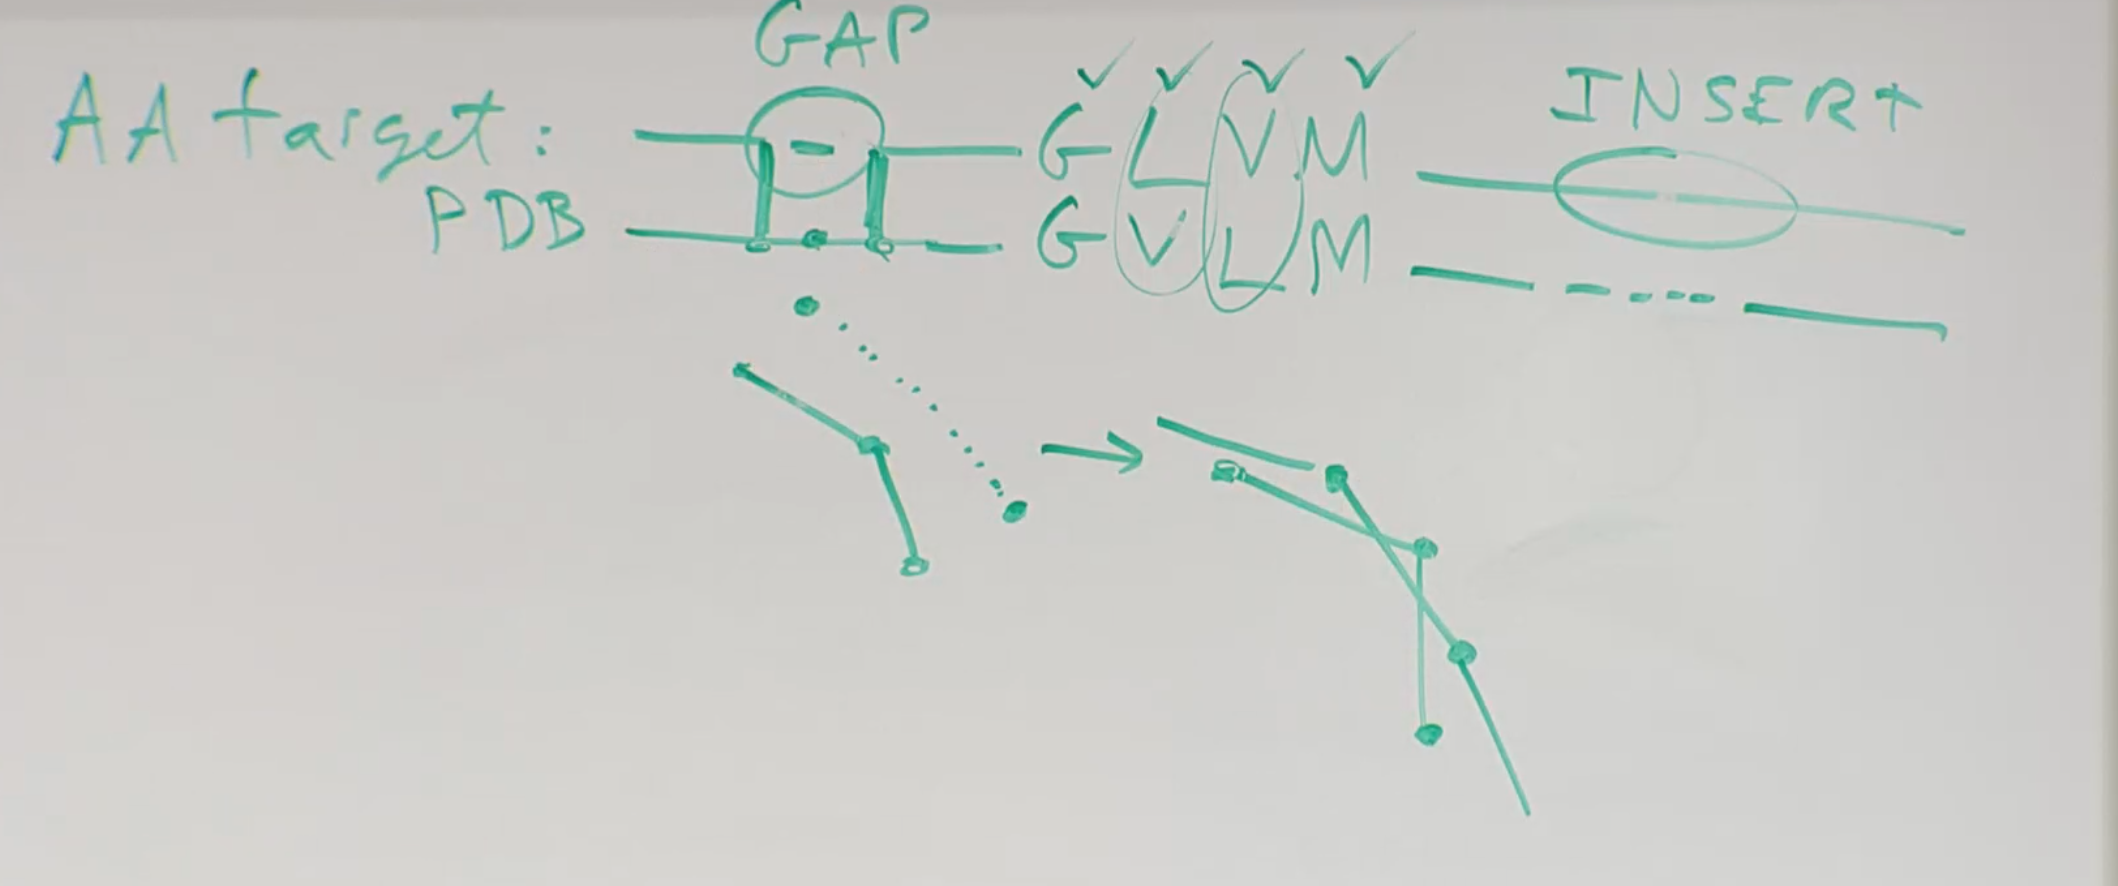 GAP
INSERT
AA target: - G L V M
PDB G V L M